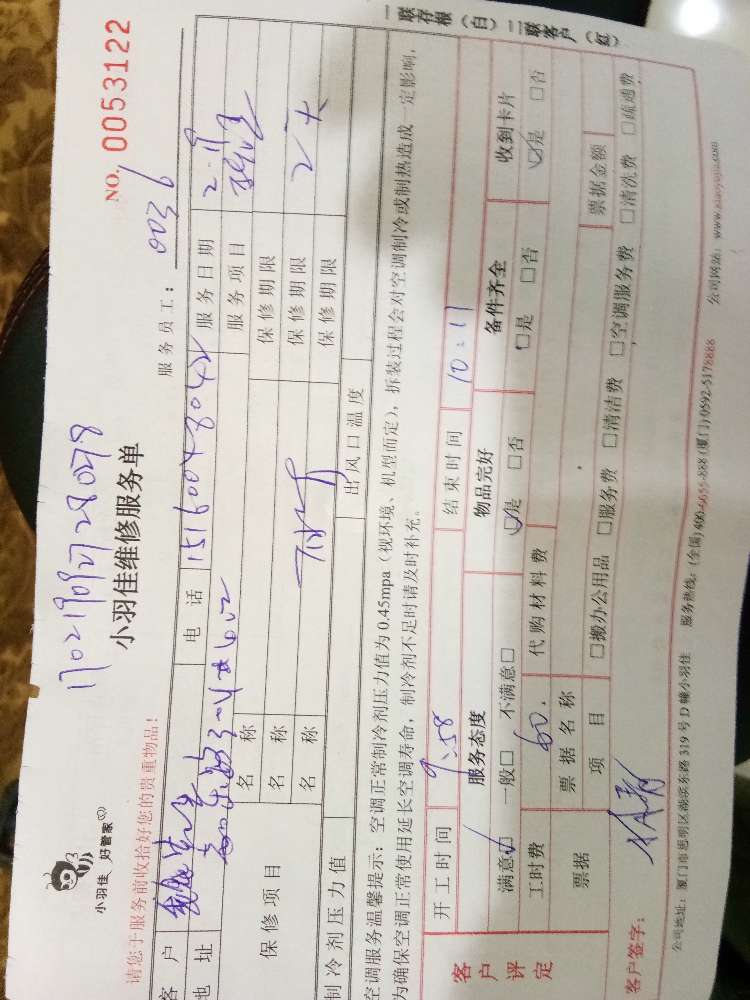 170219092728098
小羽佳 好管家
小羽佳维修服务单
NO. 0053122
请您于服务前收拾好您的贵重物品!
服务员工: 0036
客户 电话 15160048042 服务日期 2.19
地址 服务项目
保修项目 名称 保修期限
名称 保修期限 2天
名称 保修期限
制冷剂压力值 出风口温度
空调服务温馨提示:空调正常制冷剂压力值为 0.45mpa(视环境、机型而定),拆装过程会对空调制冷或制热造成一定影响,
为确保空调正常使用延长空调寿命,制冷剂不足时请及时补充。
客户评定 开工时间 9:58 结束时间 10:11
服务态度 物品完好 备件齐全 收到卡片
满意☑ 一般□ 不满意□ ☑是 □否 □是 □否 ☑是 □否
工时费 60. 代购材料费
票据 票据名称 票据金额
项目 □搬办公用品 □服务费 □清洁费 □空调服务费 □清洗费 □疏通费
客户签字:
公司地址:厦门市思明区湖滨东路 319 号 D 幢小羽佳 服务热线:(全国)400-6655-888 (厦门)0592-5178888 公司网站:www.xiaoyujia.com
一联存根(白) 二联客户(红)